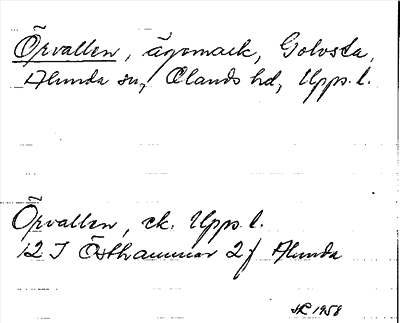 Örvallen, ägomark, Golvsta,
Alunda sn, Olands hd, Upps. l.
Örvallen, ek. Upps. l.
12 I Östhammar 2 f Alunda
1958